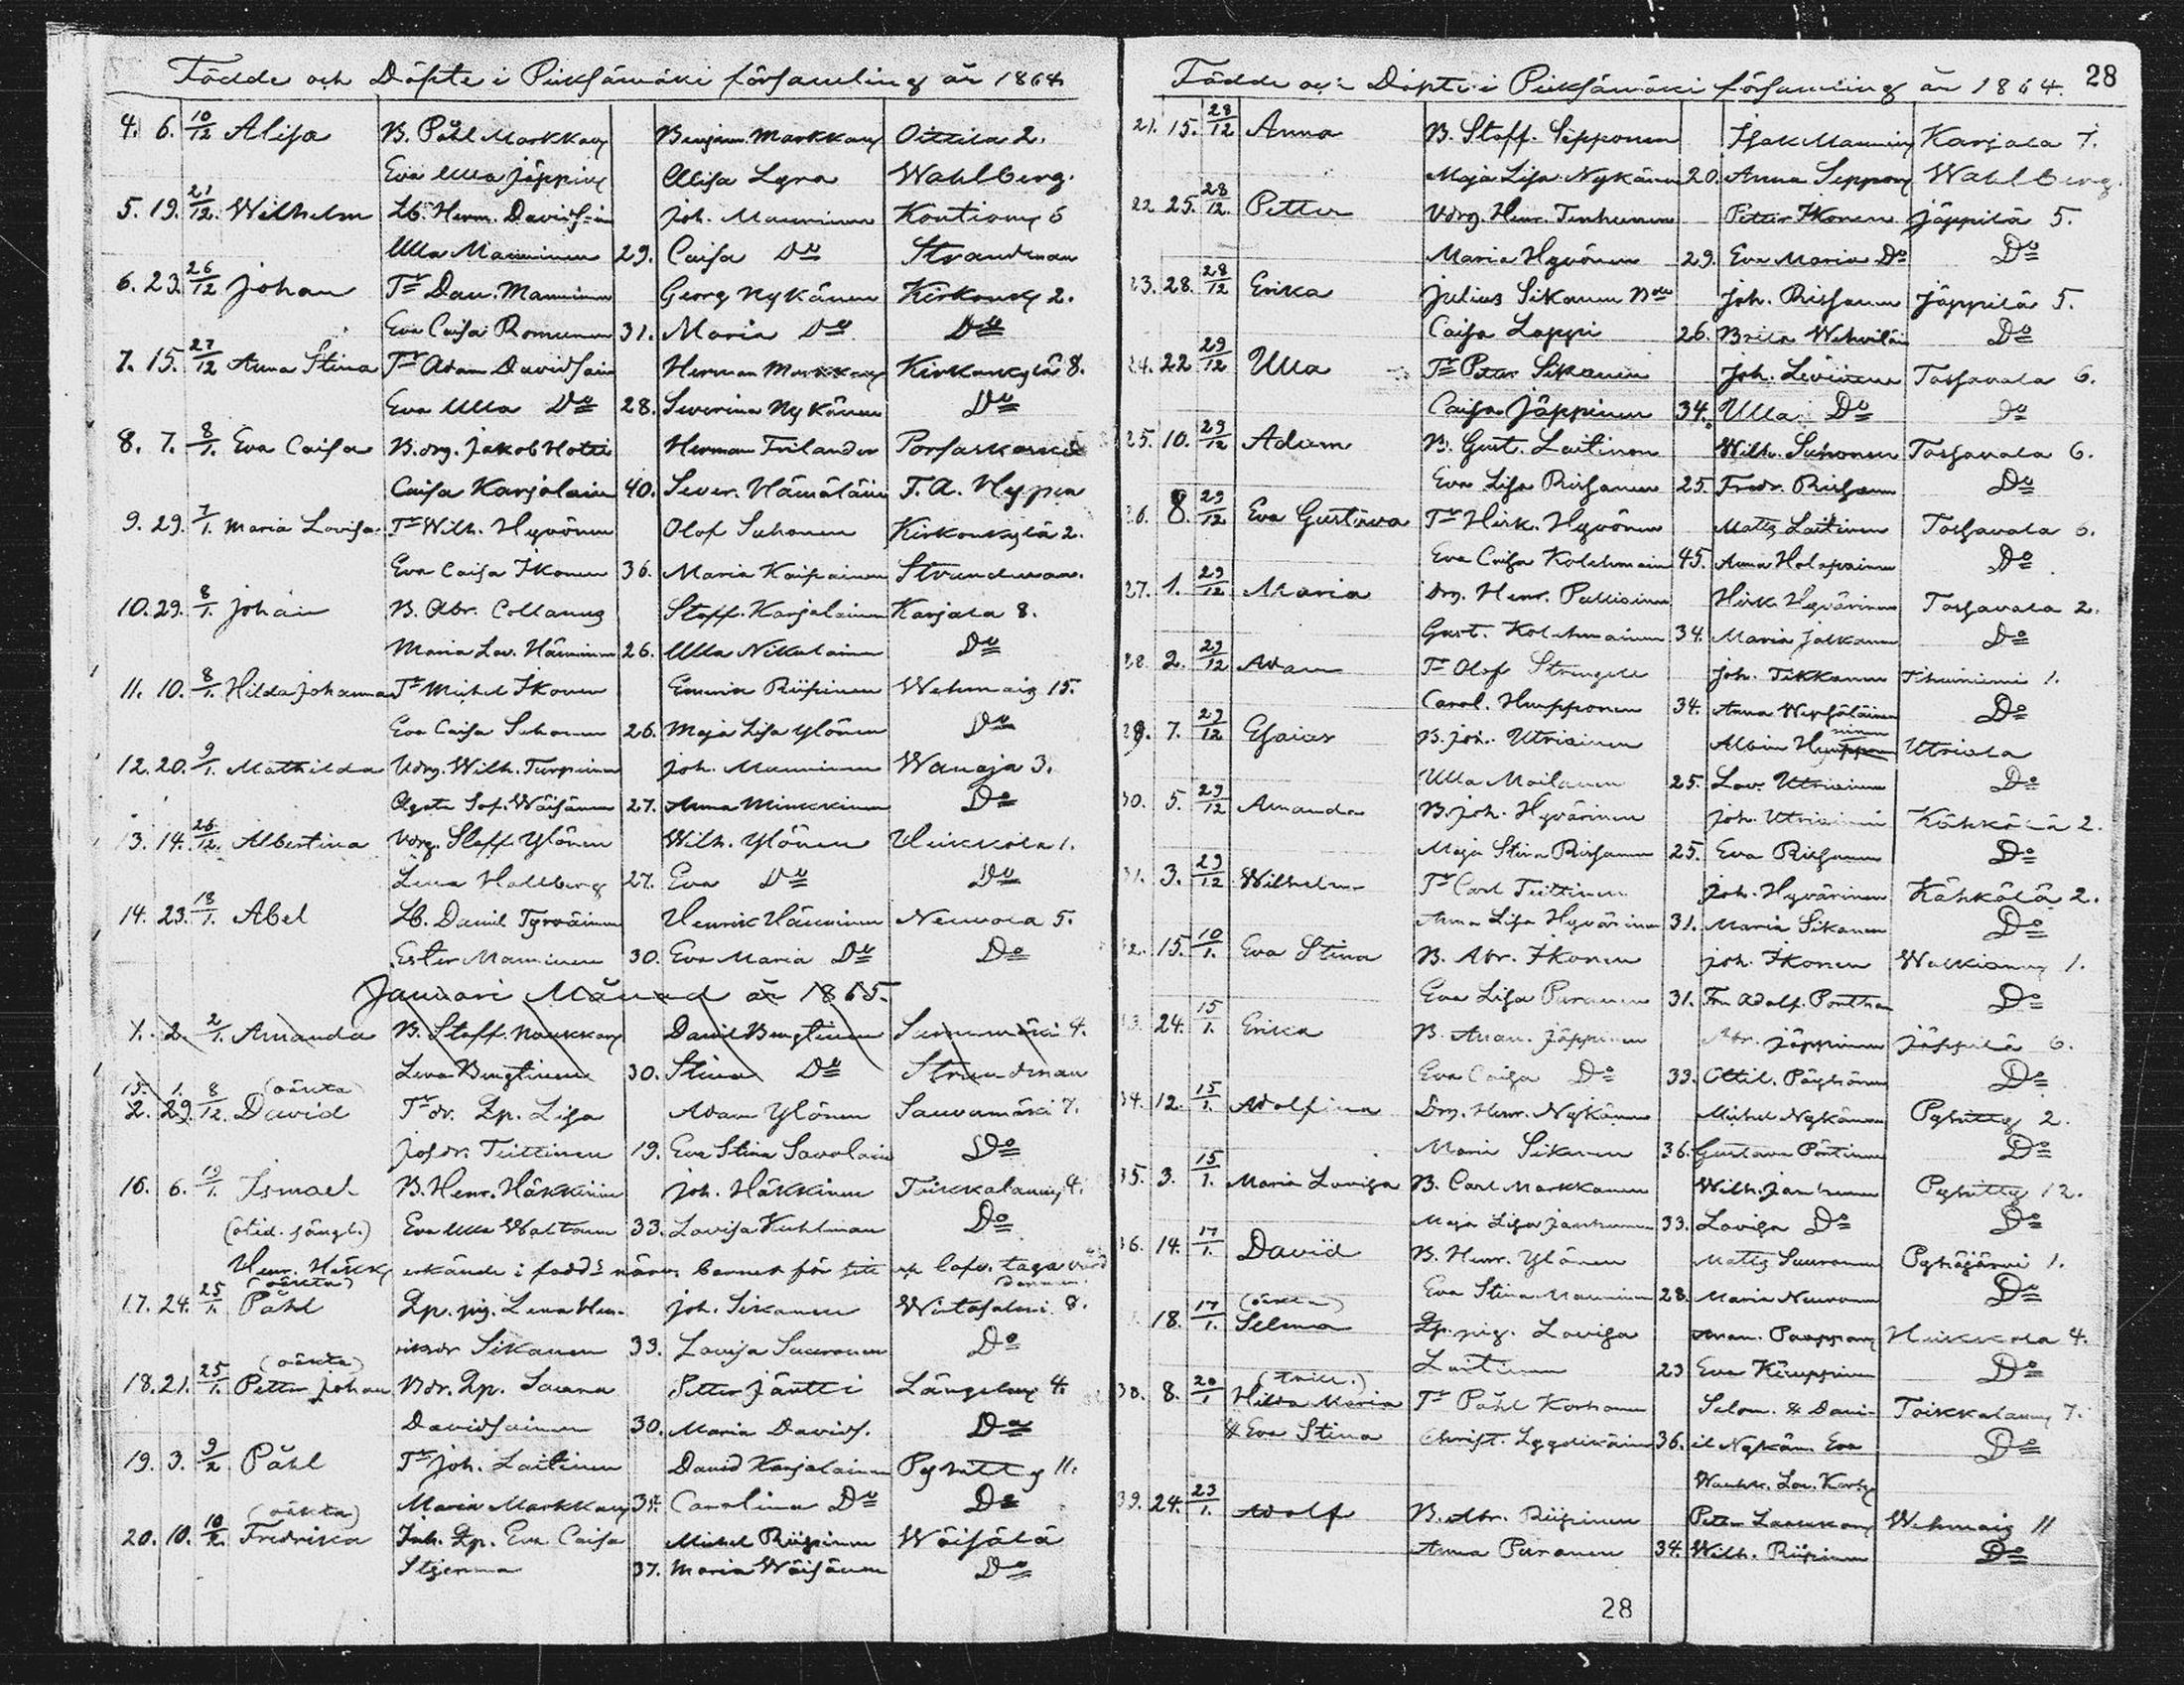 Födde och Döpte i Pieksämäki församling år 1864
4. 6. 10/12 Alisa B. Påhl Markkan Benjam. Markkan Oittila 2.
Eva Ulla Jäppin Alisa Lyra Wahlberg.
5. 19. 21/12. Wilhelm Lb. Herm. Davidsain Joh. Manninen Kontiom 6
Ulla Manninen 29. Caisa Do Strandman
6. 23. 26/12 Johan Tr Dan. Manninen Georg Nykänen Kirkonky 2.
Eva Caisa Romunen 31. Maria Do Do
7. 15. 27/12 Anna Stina Tr Adam Davidsain Herman Markkan Kirkonkylä 8.
Eva Ulla Do 28. Severina Nykänen Do
8. 7. 8/1. Eva Caisa B. drg. Jakob Hotti Herman Frilander
Caisa Karjalain 40. Sever. Hämäläin T. A. Hyppen
9. 29. 7/1. Maria Lovisa Tr Wilh. Hyvönen Olof Suhonen Kirkonkylä 2.
Eva Caisa Ikonen 36. Maria Kaipainen Strandman.
10. 29. 8/1. Johan B. Abr. Collanus Staff. Karjalainen Karjala 8.
Maria Lov. Hänninen 26. Ulla Nikulainen Do
11. 10. 8/1. Hilda Johanna Tr Michel Ikonen Enverik Riipinen Wehmaig 15.
Eva Caisa Suhonen 26. Maja Lisa Ylönen Do
12. 20. 9/1. Mathilda Udrg. Wilh. Turpeinen Joh. Manninen Wanaja 3.
Agata Sof. Wäisänen 27. Anna Minkkinen Do
13. 14. 26/12. Albertina Vdrg. Staff. Ylönen Wilh. Ylönen Heikkola 1.
Lena Hallberg 27. Eva Do Do
14. 23. 18/1. Abel Lb. Daniel Tyrväinen Henrik Hänninen Neuvola 5.
Ester Manninen 30. Eva Maria Do Do
Januari Månad år 1865.
1. 2. 2/1. Amanda B. Staff. Noukkan David Bengtinen 4.
Lena Bengtinen 30. Stina Do Strandman
15. 1. (oäkta)
2. 29. 8/12. David Tr dr. Lp. Lisa Adam Ylönen Sauvamäki 7.
Josdr. Tiittinen 19. Eva Stina Savolain Do
16. 6. 19/1. Ismael B. Henr. Häkkinen Joh. Häkkinen Toikkalanny 4.
(otid. sängl.) Eva Ulla Waltonen 33. Lovisa Kuhlman Do
Henr. Häkk erkände i fadds närv. barnet för sitt och lofv. taga vård
derom.
(oäkta)
17. 24. 25/1. Påhl Lp. pig. Lena Hen- Joh. Sikanen Wintasalmi 8.
riksdr Sikanen 33. Lovisa Suuronen Do
(oäkta)
18. 21. 25/1. Petter Johan Bdr. Lp. Saara Petter Jäntti Längelmy 4.
Davidsainen 30. Maria Davids. Do
19. 3. 9/2 Påhl Tr Joh. Laitinen David Karjalainen Pyhitty 11.
Maria Markkan 34. Carolina Do Do
(oäkta)
20. 10. 10/2. Fredrika Inh. Lp. Eva Caisa Michel Riipinen Wäisälä
Stjerna 37. Maria Wäisänen Do
Födde och Döpte i Pieksämäki församling år 1864. 28
21. 15. 28/12 Anna B. Staff. Sepponen Isak Mannin Karjala 7.
Maja Lisa Nykänen 20. Anna Seppon Wahlberg.
22 25. 28/12. Petter Vdrg. Henr. Tenhunen Petter Ikonen Jäppilä 5.
Maria Hyvönen 29. Eva Maria Do Do
23. 28. 28/12 Erika Julius Sikanen Bde Joh. Rissanen Jäppilä 5.
Caisa Lappi 26. Brita Wehviläi Do
24. 22 29/12 Ulla Tr Petter Sikanen Joh. Levänen Tossavala 6.
Caisa Jäppinen 34. Ulla Do Do
25. 10. 29/12 Adam B. Gust. Laitinen Wilh. Suhonen Tossavala 6.
Eva Lisa Rissanen 25. Fredr. Rissanen Do
26. 8. 29/12 Eva Gustava Tr Hirk. Hyvönen Matts Laitinen Tossavala 6.
Eva Caisa Kolehmain 45. Anna Holopainen Do
27. 1. 29/12 Maria Drg. Henr. Pulliainen Hirk. Hyvärinen Tossavala 2.
Gust. Kolehmainen 34. Maria Jalkanen Do
28. 2. 29/12 Adam Tr Olof Strengell Joh. Tikkanen Tihuniemi 1.
Carol. Humpponen 34. Anna Wepsäläinen Do
29. 7. 29/12 Esaias B. Joh. Utriainen Albin Utriala
Ulla Moilanen 25. Lov. Utriainen Do
30. 5. 29/12 Amanda B. Joh. Hyvärinen Joh. Utriainen Kähkölä 2.
Maja Stina Rissanen 25. Eva Rissanen Do
31. 3. 29/12 Wilhelm Tr Carl Tiittinen Joh. Hyvärinen Kähkölä 2.
Anna Lisa Hyvärinen 31. Maria Sikanen Do
32. 15. 10/1. Eva Stina B. Abr. Ikonen Joh. Ikonen Walkiamy 1.
Eva Lisa Puranen 31. Fru Adolf. Ponthan Do
33. 24. 15/1. Erika B. Anan. Jäppinen Abr. Jäppinen Jäppilä 6.
Eva Caisa Do 33. Ottil. Pöyhönen Do
34. 12. 15/1. Adolfina Drg. Henr. Nykänen Michel Nykänen Pyhitty 2.
Maria Sikanen 36. Gustava Pöntinen Do
35. 3. 15/1. Maria Lovisa B. Carl Markkanen Wilh. Janhunen Pyhitty 12.
Maja Lisa Janhunen 33. Lovisa Do Do
36. 14. 17/1. David B. Henr. Ylönen Matts Suuronen Pyhäjärvi 1.
Eva Stina Manninen 28. Maria Neuvonen Do
(oäkta)
18. 17/1. Selma Lp. pig. Lovisa Anan. Paappan Heikkola 4.
Laitinen 23 Eva Kämppinen Do
(tvill.)
38. 8. 20/1 Hilda Maria Tr Påhl Korhonen Salom. & Dani- Toikkalanny 7.
& Eva Stina Christ. Lyydikäinen 36. il Nykän. Eva Do
Lov. Korh
39. 24. 23/1. Adolf B. Abr. Riipinen Petter Laukkan Wehmaig 11
Anna Puranen 34. Wilh. Riipinen Do
28